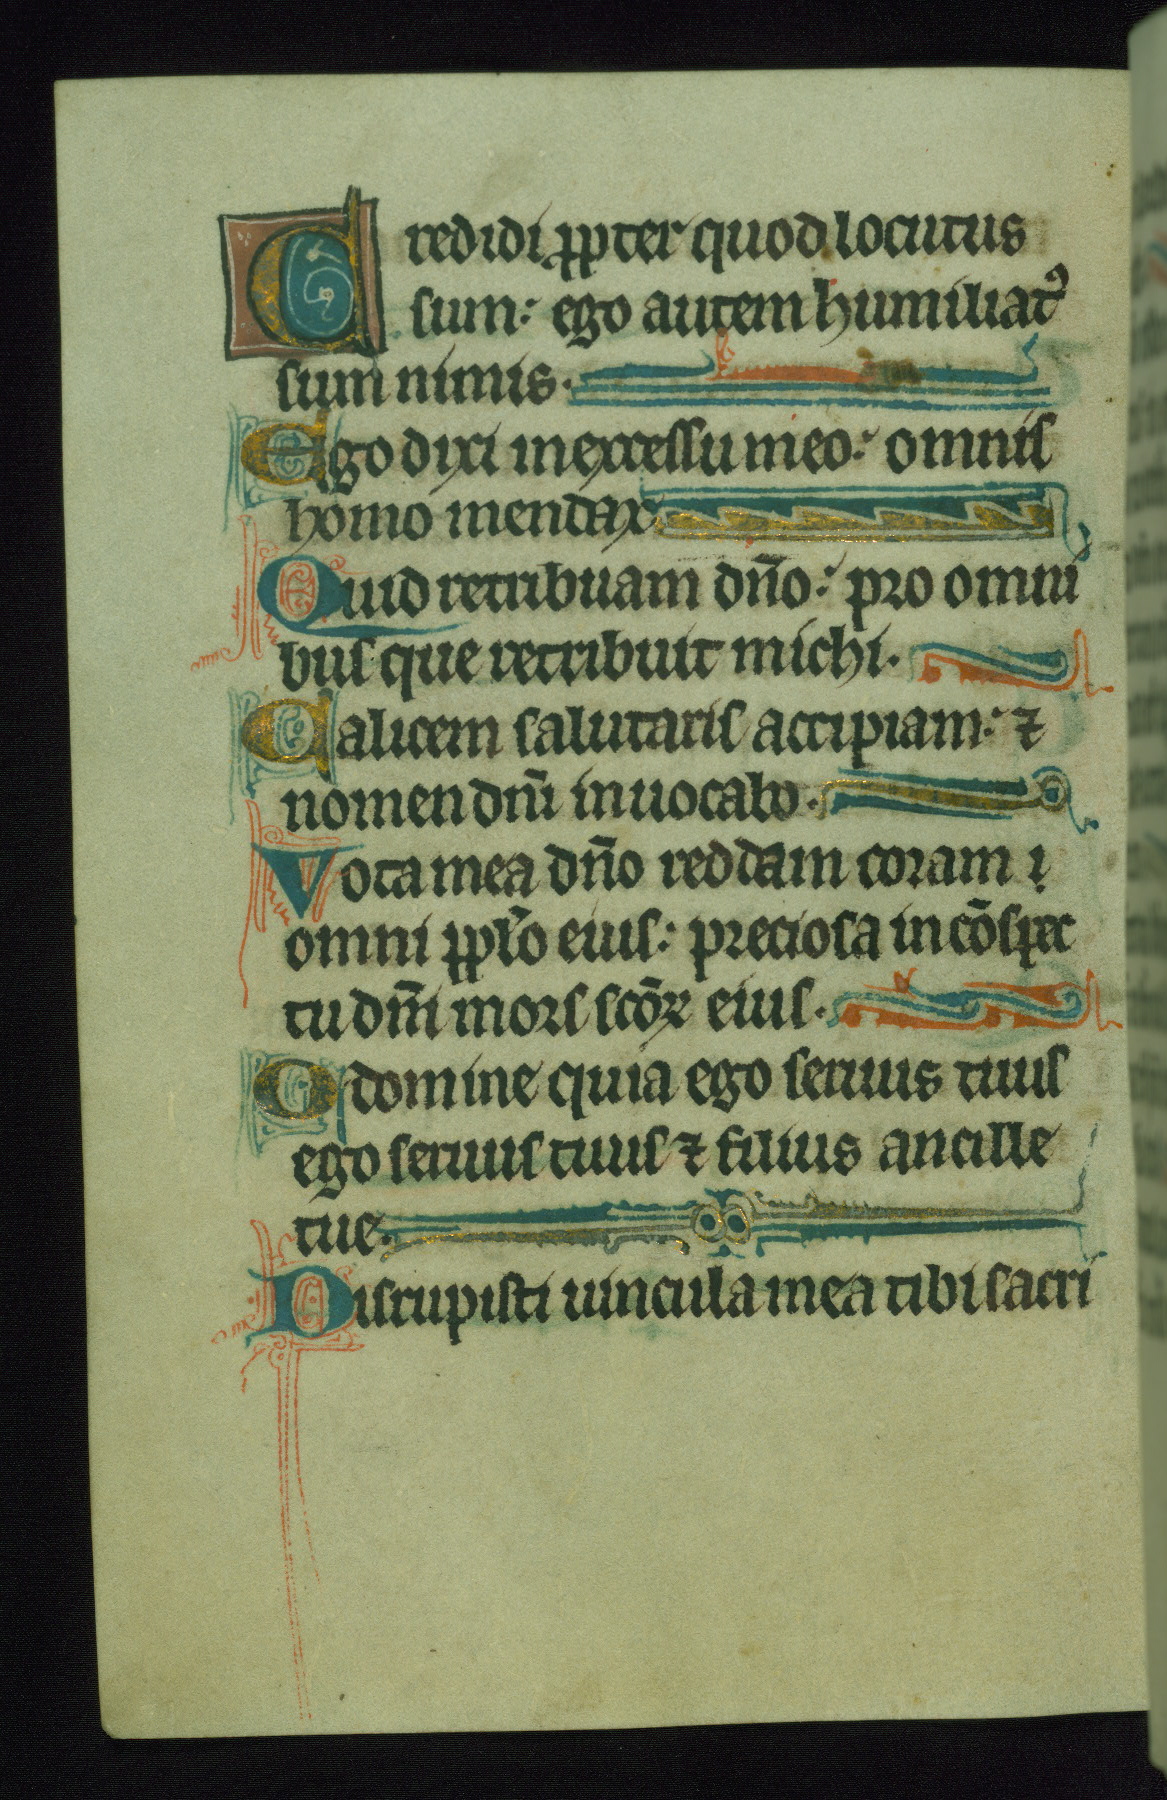 Credidi ꝓpter quod locutus
sum: ego autem humiliatꝰ
sum nimis.
Ego dixi in excessu meo: omnis
homo mendax
Quid retribuam dño: pro omni
bus que retribuit michi.
Calicem salutaris accipiam: ⁊
nomen dñi inuocabo.
Vota mea dño reddam coram ı
omni ppl̃o eius: preciosa in cõspec
tu dñi mors scõꝝ eius.
O domine quia ego seruus tuus
ego seruus tuus ⁊ filius ancille
tue.
Dirupisti uincula mea tibi sacri